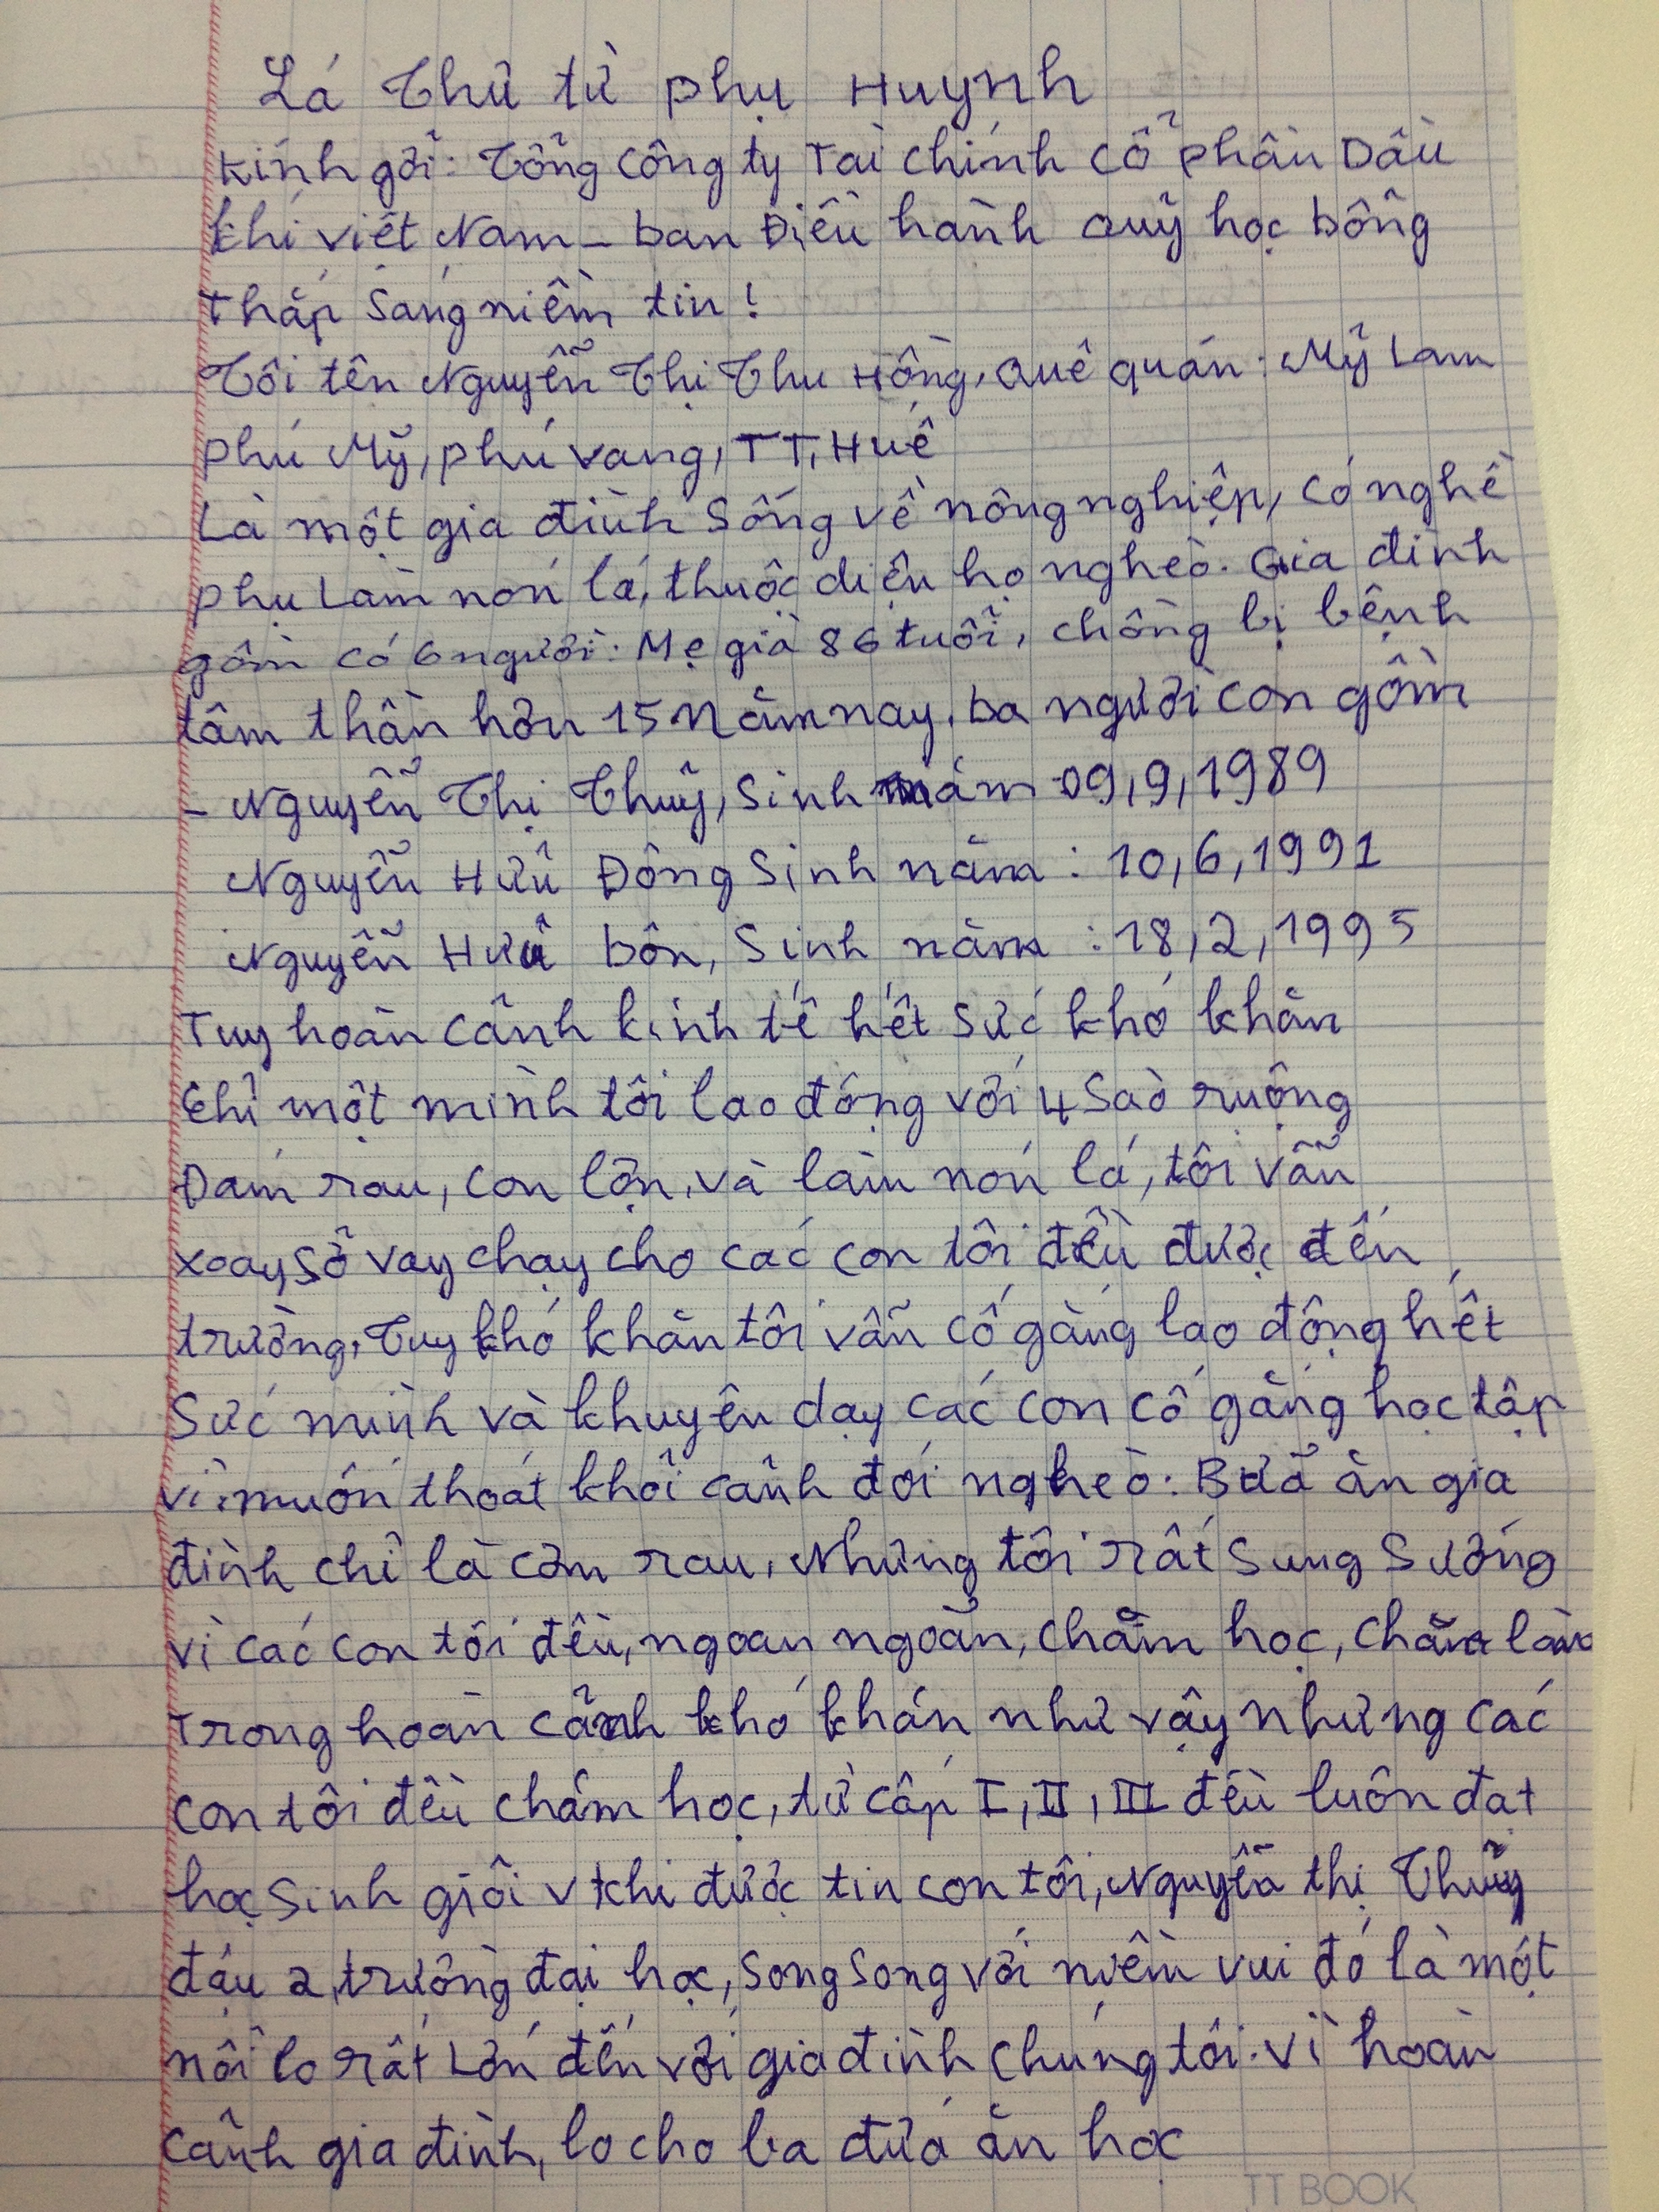 Lá Thư từ phụ Huynh
Kính gởi: Tổng Công ty Tài chính Cổ phần Dầu
khí việt Nam - ban Điều hành Quỹ học bổng
Thắp Sáng niềm tin!
Tôi tên Nguyễn Thị Thu Hồng, Quê quán: Mỹ Lam
Phú Mỹ, phú vang, TT, Huế
Là một gia đình Sống về nông nghiệp, có nghề
phụ Làm nón lá, thuộc diện hộ nghèo. Gia đình
gồm có 6 người: Mẹ già 86 tuổi, chồng bị bệnh
tâm thần hơn 15 Năm nay, ba người con gồm
- Nguyễn Thị Thuỷ, Sinh năm 09,9,1989
Nguyễn Hữu Đông Sinh năm: 10,6,1991
Nguyễn Hữu bôn, Sinh năm: 18,2,1995
Tuy hoàn cảnh kinh tế hết sức khó khăn
Chỉ một mình tôi lao động với 4 Sào ruộng
Đám rau, con lợn, và làm nón lá, tôi vẫn
xoay sở vay chạy cho các con tôi đều được đến
trường, Tuy khó khăn tôi vẫn cố gắng lao động hết
Sức mình và khuyên dạy các con cố gắng học tập
vì muốn thoát khỏi cảnh đói nghèo: Bữa ăn gia
đình chỉ là cơm rau, Nhưng tôi rất Sung Sướng
vì các con tôi đều, ngoan ngoãn, chăm học, chăm làm
Trong hoàn cảnh khó khăn như vậy nhưng các
con tôi đều chăm học, từ cấp I, II, III đều luôn đạt
học Sinh giỏi v khi được tin con tôi, Nguyễn thị Thuỷ
đậu 2, trường đại học, Song Song với niềm vui đó là một
nỗi lo rất Lớn đến với gia đình chúng tôi. vì hoàn
cảnh gia đình, lo cho ba đứa ăn học
TT BOOK